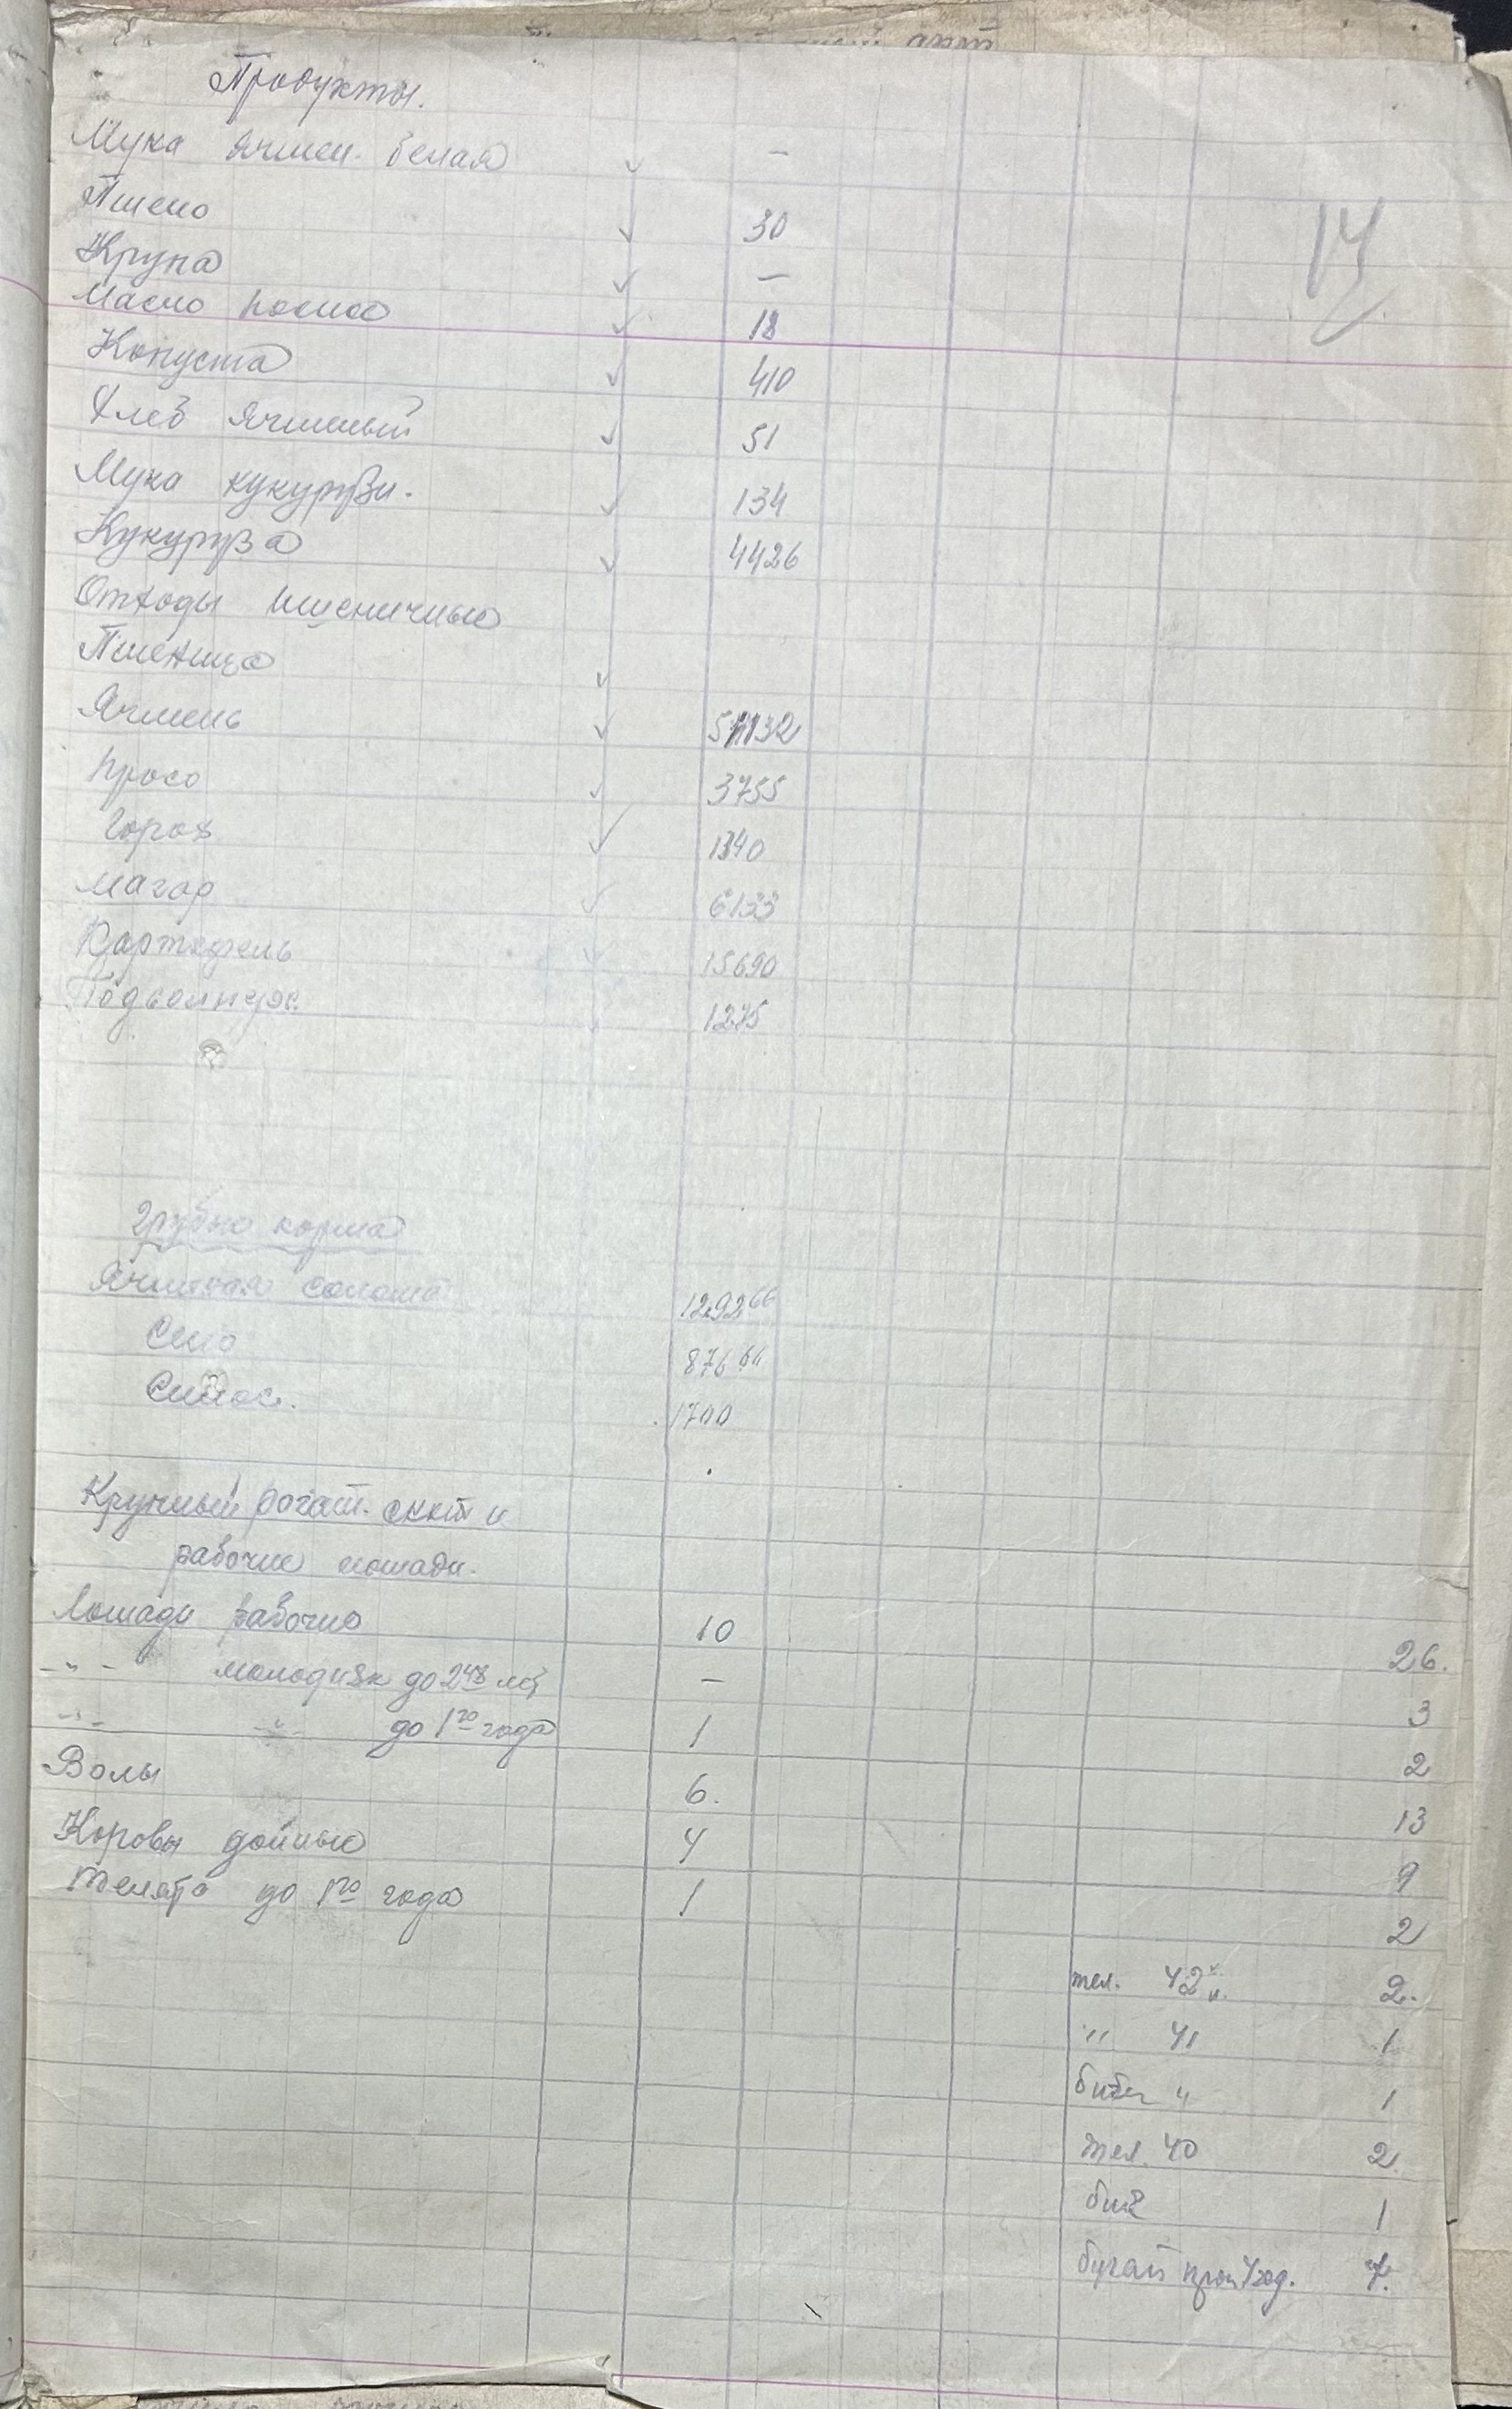 Продукты.
14
Мука ячмен. белая ✓ —
Пшено ✓ 30
Крупа ✓ —
Масло посное ✓ 18
Копуста ✓ 410
Хлеб ячменый ✓ 51
Мука кукурузн. ✓ 134
Кукуруза ✓ 4426
Отходы пшеничные
Пшеница ✓
Ячмень ✓
просо ✓ 3755
Горох ✓ 1340
Магар ✓ 6133
Картофель ✓ 15690
1275
Грубые корма
Ячменая солома 1292 66
Сено 876
Силос. 1700
Крупный рогат. скот и
рабочие лошади.
Лошади рабочие 10 26.
-"- молодняк до 2 лет — 3
-"- -"- до 1го года 1 2
Волы 6. 13
Коровы дойные 4 9
Телята до 1го года 1 2
тел. 42 2.
" 41 1
" 1
тел. 40 2.
1
бугай 7.